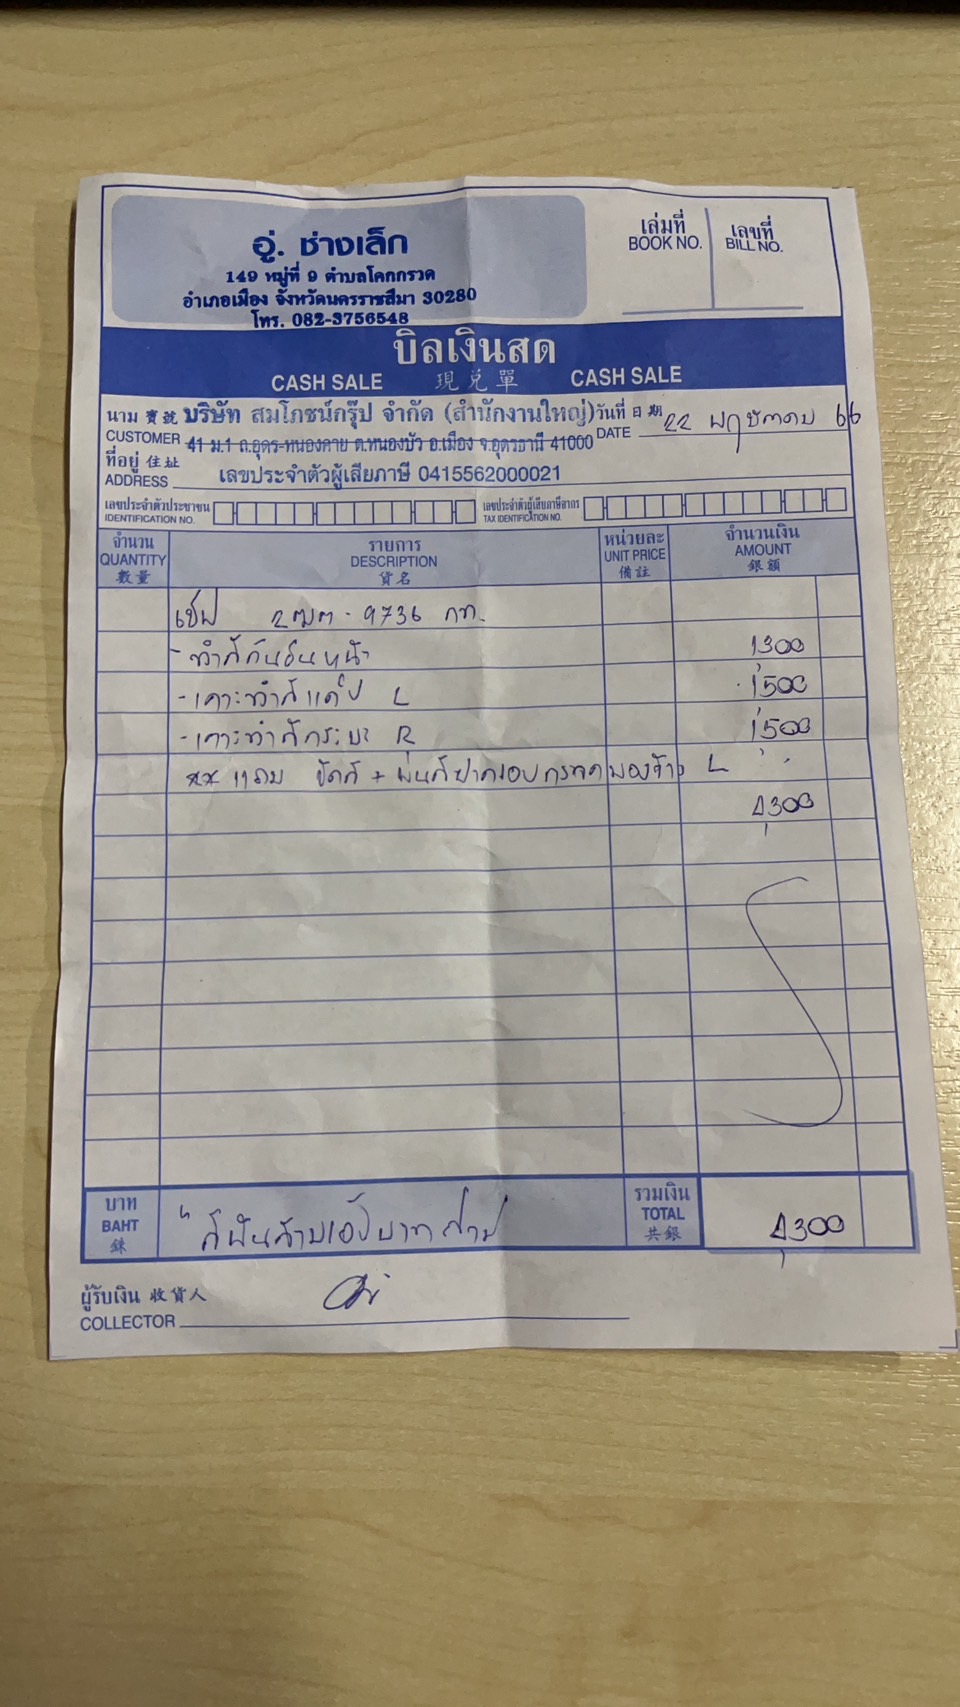 อู่. ช่างเล็ก
149 หมู่ที่ 9 ตำบลโคกกรวด
อำเภอเมือง จังหวัดนครราชสีมา 30280
โทร. 082-3756548
เล่มที่ เลขที่
BOOK NO. BILL NO.
บิลเงินสด
CASH SALE 現兌單 CASH SALE
นาม 寶號 บริษัท สมโภชน์กรุ๊ป จำกัด (สำนักงานใหญ่) วันที่ 日期 22 พฤษภาคม 66
CUSTOMER 41 ม.1 ถ.อุดร-หนองคาย ต.หนองบัว อ.เมือง จ.อุดรธานี 41000 DATE
ที่อยู่ 住址
ADDRESS เลขประจำตัวผู้เสียภาษี 0415562000021
เลขประจำตัวประชาชน เลขประจำตัวผู้เสียภาษีอากร
IDENTIFICATION NO. TAX IDENTIFICATION NO.
จำนวน รายการ หน่วยละ จำนวนเงิน
QUANTITY DESCRIPTION UNIT PRICE AMOUNT
數量 貨名 備註 銀額
เชฟ 2ฒต - 9736 กท.
- ทำสีกันชนหน้า 1,300
- เคาะทำสีแค๊ป L 1,500
- เคาะทำสีกระบะ R 1,500
** แถม ขัดสี + พ่นสีฝาครอบกระจกมองข้าง L
4,300
บาท สี่พันสามร้อยบาทถ้วน รวมเงิน 4,300
BAHT TOTAL
銖 共銀
ผู้รับเงิน 收貨人
COLLECTOR